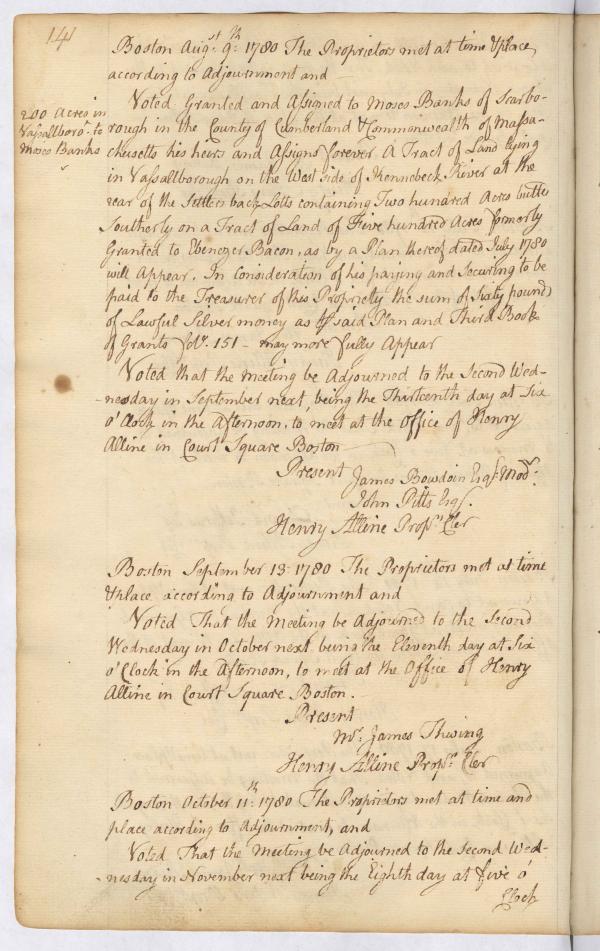 141
Boston Augst. 9th. 1780 The Proprietors met at time & place
according to Adjournment and
200 Acres in
Vassallboro'. to
Moses Banks
Voted Granted and Assigned to Moses Banks of Scarbo-
rough in the County of Cumberland & Commonwealth of Massa-
chusetts his heirs and Assigns forever A Tract of Land lying
in Vassallborough on the West side of Kennebeck River at the
rear of the Settlers back Lotts containing Two hundred Acres butted
Southerly on a Tract of Land of Five hundred Acres formerly
Granted to Ebenezer Bacon, as by a Plan thereof dated July 1780
will Appear. In Consideration of his paying and Securing to be
paid to the Treasurer of this Propriety the sum of Sixty pounds
of Lawful Silver money as said Plan and Third Book
of Grants fol. 151 - may more fully Appear
Voted that the Meeting be Adjourned to the Second Wed-
-nesday in September next, being the Thirteenth day at Six
o'Clock in the Afternoon, to meet at the Office of Henry
Alline in Court Square Boston
Present James Bowdoin Esqr. Modr.
John Pitts Esqr.
Henry Alline Proprs. Cler
Boston September 13: 1780 The Proprietors met at time
& place according to Adjournment and
Voted That the Meeting be Adjourned to the Second
Wednesday in October next being the Eleventh day at Six
o'Clock in the Afternoon, to meet at the Office of Henry
Alline in Court Square Boston.
Present
Mr. James Thwing
Henry Alline Proprs. Cler
Boston October 11th: 1780 The Proprietors met at time and
place according to Adjournment, and
Voted That the Meeting be Adjourned to the Second Wed-
-nesday in November next being the Eighth day at five o'
Clock